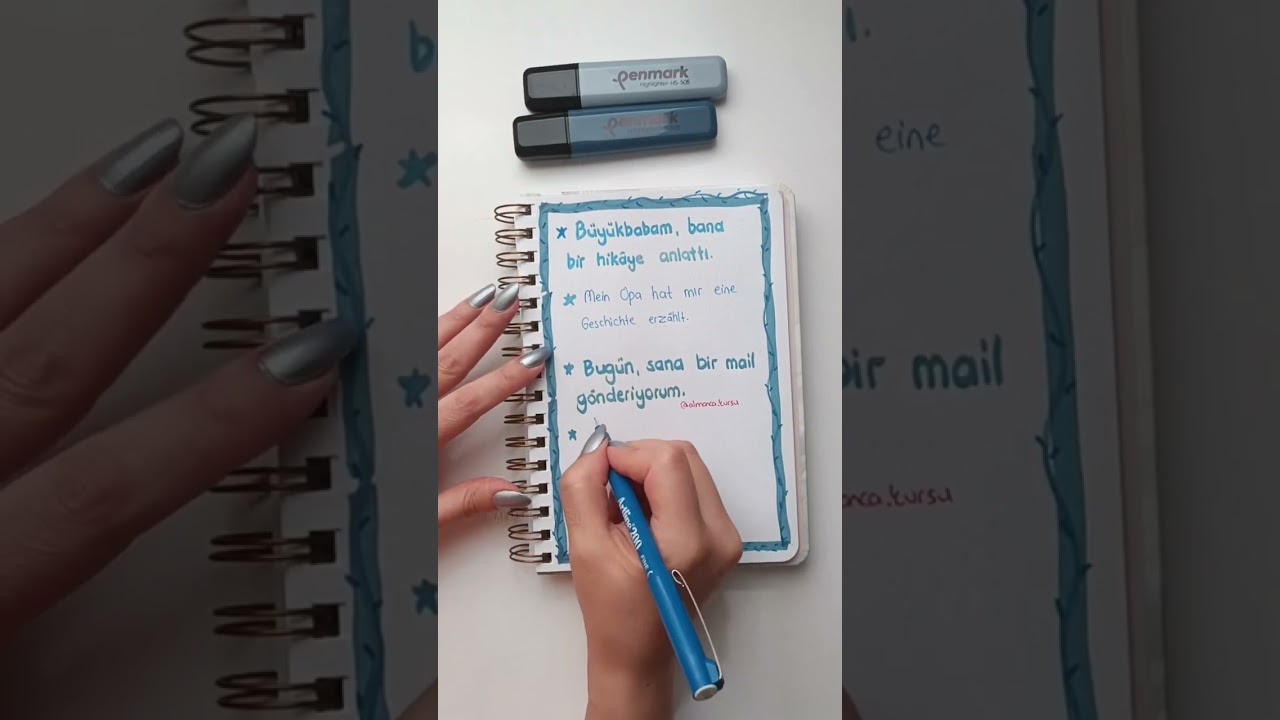 Penmark
Highlighter HS-505
Penmark
★ Büyükbabam, bana
bir hikâye anlattı.
★ Mein Opa hat mir eine
Geschichte erzählt.
★ Bugün, sana bir mail
gönderiyorum.
@almanca.kursu
★
Artline 200